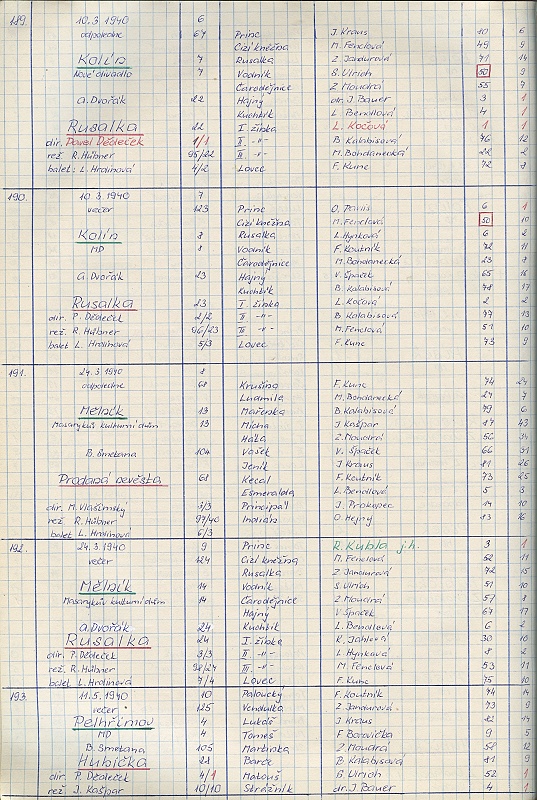 189. 10.3.1940 6 Princ J. Kraus 10 6
odpoledne 67 Cizí kněžna M. Fenclová 49 9
Kolín 7 Rusalka Z. Jandurová 71 14
Nové divadlo 7 Vodník S. Ulrich 50 9
Čarodějnice Z Moudrá 55 7
A. Dvořák 22 Hajný dr. J. Bauer 3 1
Kuchtík L. Bendlová 4 1
Rusalka 22 I. žínka L. Kočová 1 1
dir. Pavel Dědeček 1/1 II -"- B Kalabisová 76 12
rež. R. Hübner 95/22 II -"- M. Bohdanecká 22 2
balet: L. Hrdinová 4/2 Lovec F. Kunc 72 8
190. 10.3.1940 7 Princ O. Pařís 6 1
večer 123 Cizí kněžna M. Fenclová 50 10
Kolín 8 Rusalka L. Hynková 6 2
MD 8 Vodník F. Koutník 72 11
Čarodějnice M. Bohdanecká 23 8
A. Dvořák 23 Hajný V. Špaček 65 16
Kuchtík B. Kalabisová 78 17
Rusalka 23 I. žínka L. Kočová 2 2
dir. P. Dědeček 2/2 II -"- B Kalabisová 77 13
rež. R. Hübner 96/23 II -"- M. Fenclová 51 10
balet L. Hrdinová 5/3 Lovec F. Kunc 73 9
191. 24.3.1940 8
odpoledne 68 Krušina F. Kunc 74 24
Ludmila M. Bohdanecká 24 7
Mělník 13 Mařenka B. Kalabisová 79 6
Masarykův kulturní dům 13 Mícha J Kašpar 17 43
Háta Z. Moudrá 56 34
B. Smetana 104 Vašek V. Špaček 66 31
Jeník J Kraus 81 26
Prodaná nevěsta 68 Kecal F. Koutník 73 25
Esmeralda L. Bendlová 5 3
dir. M. Vlašimský 3/3 Principál J. Prokopec 14 10
rež. R. Hübner 97/40 Indián O Hejný 13 16
balet L. Hrdinová 6/3
192. 24.3.1940 9 Princ R. Kubla j.h. 3 1
večer 124 Cizí kněžna M. Fenclová 52 11
Rusalka Z. Jandurová 72 15
Mělník 14 Vodník S. Ulrich 51 10
Masarykův kulturní dům 14 Čarodějnice Z. Moudrá 57 8
Hajný V Špaček 67 17
A. Dvořák 24 Kuchtík L. Bendlová 6 2
Rusalka 24 I. žínka R. Jahlová 30 10
dir. P. Dědeček 3/3 II -"- L. Hynková 8 2
rež. R. Hübner 98/24 II -"- M. Fenclová 53 11
balet L. Hrdinová 7/4 Lovec F. Kunc 75 10
193. 11.5.1940 10 Paloucký F. Koutník 74 14
večer 125 Vendulka Z. Jandurová 73 9
Pelhřimov 4 Lukáš J Kraus 82 14
MD 4 Tomeš F Borovička 9 5
B. Smetana 105 Martinka Z Moudrá 58 12
Hubička 28 Barče B. Kalabisová 81 9
dir. P. Dědeček 4/1 Matouš S Ulrich 52 1
rež. J. Kašpar 10/10 Strážník dr. J. Bauer 4 1